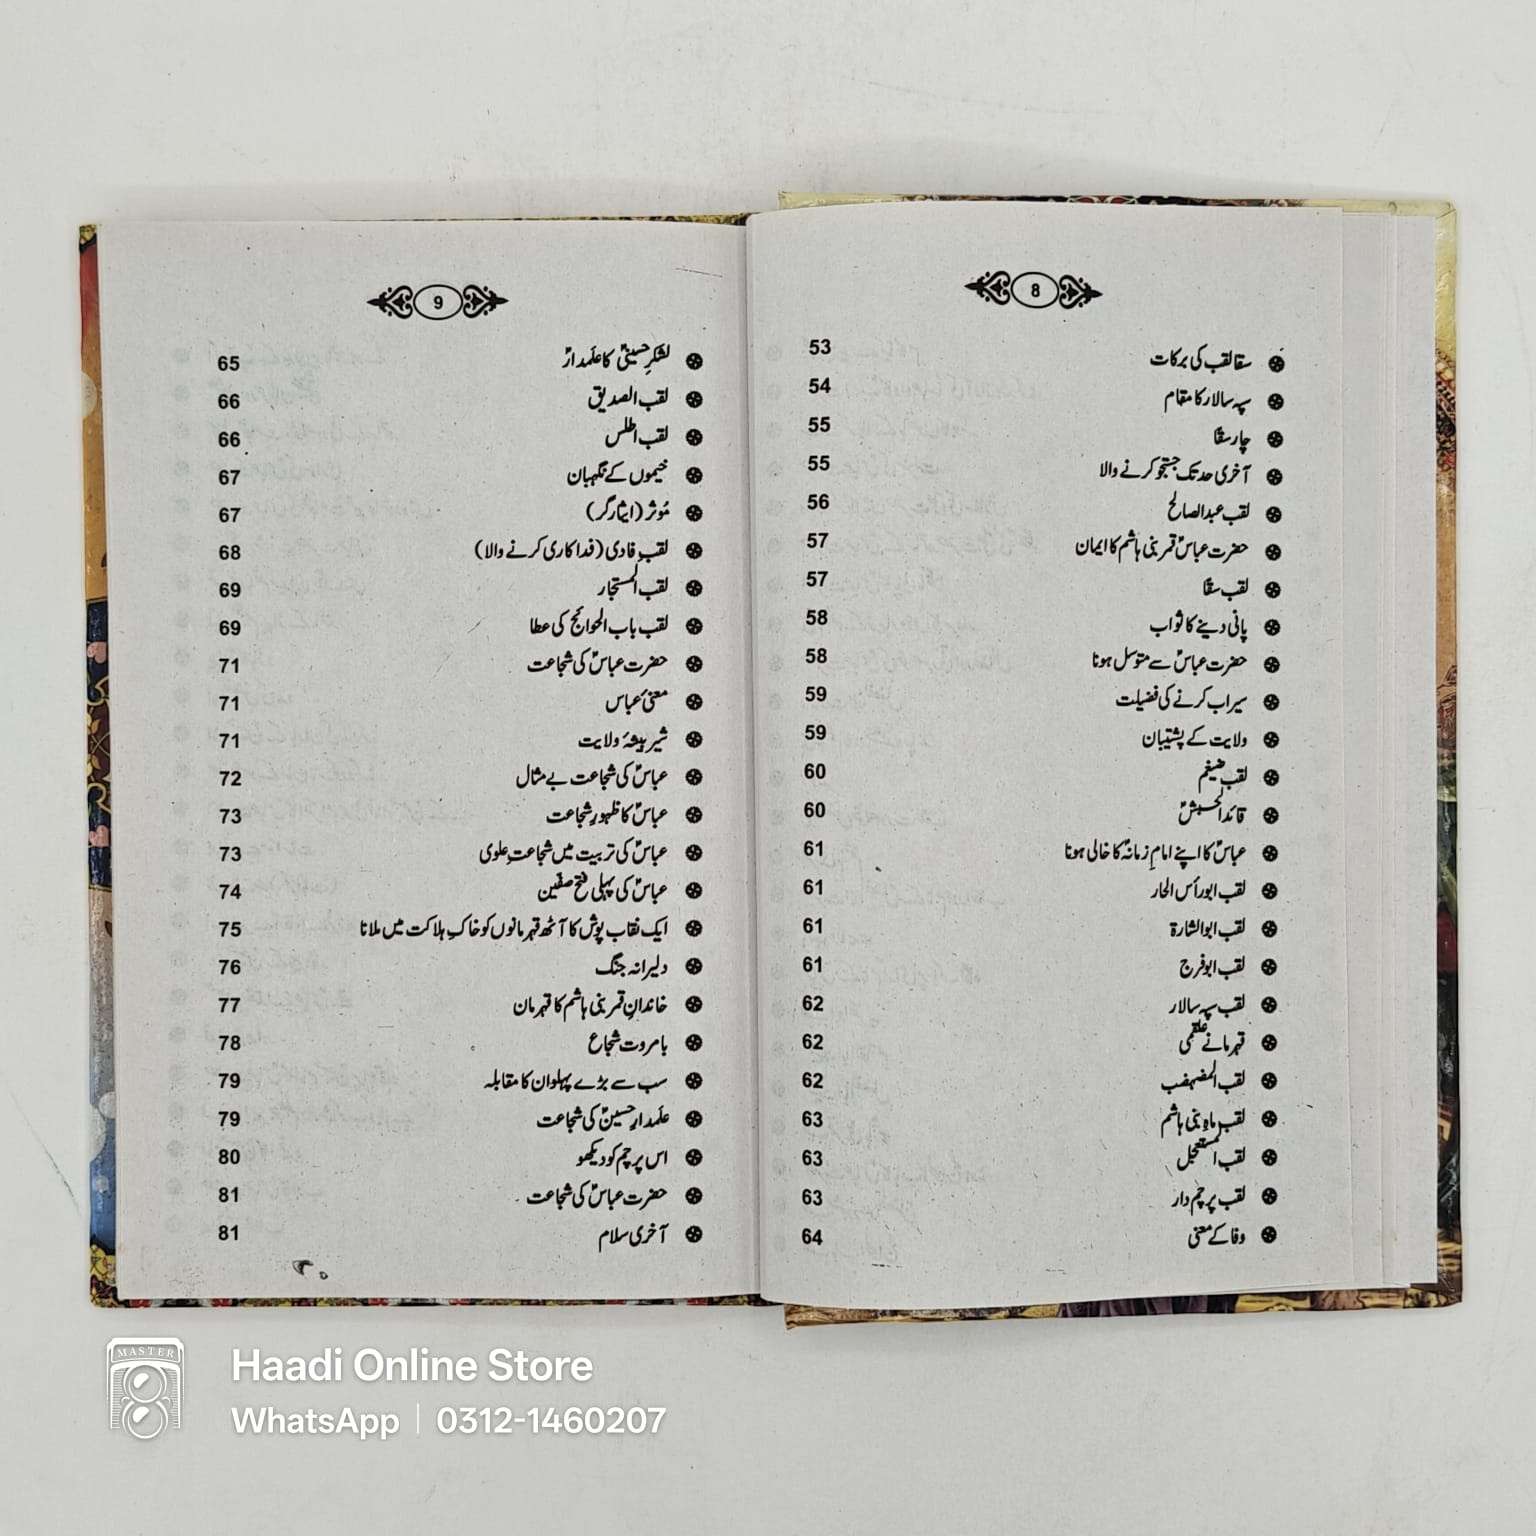 8
سقا لقب کی برکات 53
سپہ سالار کا مقام 54
چار سقّا 55
آخری حد تک جستجو کرنے والا 55
لقب عبدالصالح 56
حضرت عباسؑ قمر بنی ہاشم کا ایمان 57
لقب سقّا 57
پانی دینے کا ثواب 58
حضرت عباسؑ سے متوسل ہونا 58
سیراب کرنے کی فضیلت 59
ولایت کے پشتیبان 59
لقب ضیغم 60
قائد الجیشؑ 60
عباسؑ کا اپنے امامِ زمانہؑ کا خالی ہونا 61
لقب ابوراٗس الحار 61
لقب ابوالشارۃ 61
لقب ابوفرج 61
لقب سپہ سالار 62
قہرمانے علقمی 62
لقب 62
لقب ماہِ بنی ہاشم 63
لقب المستعجل 63
لقب پرچم دار 63
وفا کے معنی 64
9
لشکرِ حسینیؑ کا علَمدارؑ 65
لقب الصدیق 66
لقب اطلس 66
خیموں کے نگہبان 67
مُوثر (ایثارگر) 67
لقبِ فادی (فداکاری کرنے والا) 68
لقب المستجار 69
لقب باب الحوائج کی عطا 69
حضرت عباسؑ کی شجاعت 71
معنیٔ عباس 71
شیر بیشۂ ولایت 71
عباسؑ کی شجاعت بے مثال 72
عباسؑ کا ظہورِ شجاعت 73
عباسؑ کی تربیت میں شجاعتِ علوی 73
عباسؑ کی پہلی فتح صفین 74
ایک نقاب پوش کا آٹھ قہرمانوں کو خاکِ ہلاکت میں ملانا 75
دلیرانہ جنگ 76
خاندانِ قمر بنی ہاشم کا قہرمان 77
بامروت شجاع 78
سب سے بڑے پہلوان کا مقابلہ 79
علَمدارِ حسینؑ کی شجاعت 79
اس پرچم کو دیکھو 80
حضرت عباسؑ کی شجاعت 81
آخری سلام 81
MASTER
Haadi Online Store
WhatsApp | 0312-1460207